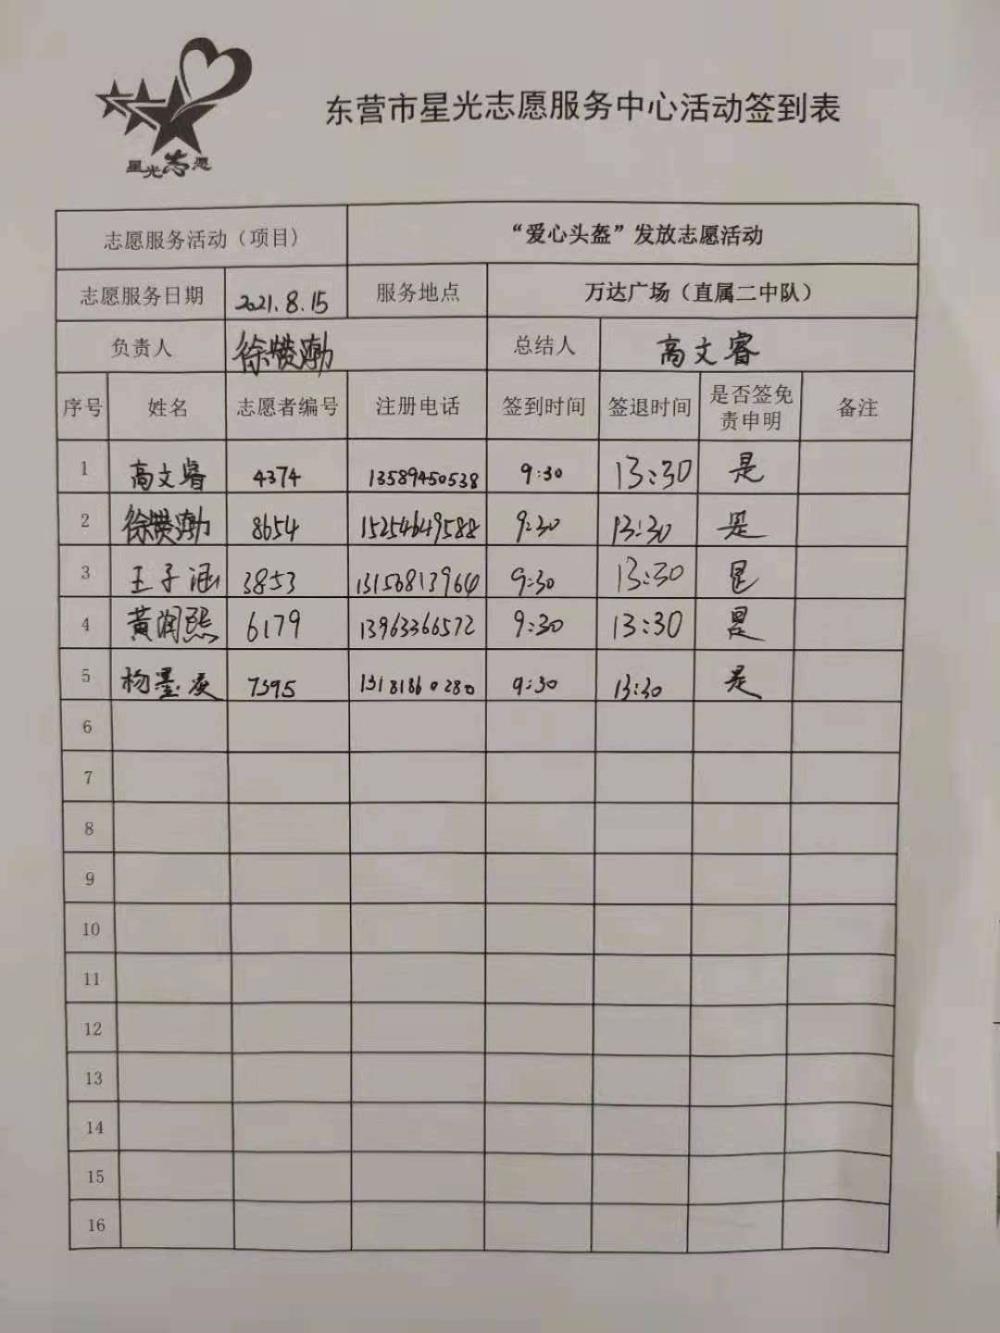 星光志愿
东营市星光志愿服务中心活动签到表
志愿服务活动（项目） “爱心头盔”发放志愿活动
志愿服务日期 2021.8.15 服务地点 万达广场（直属二中队）
负责人 徐赞渤 总结人 高文睿
序号 姓名 志愿者编号 注册电话 签到时间 签退时间 是否签免责申明 备注
1 高文睿 4374 13589450538 9:30 13:30 是
2 徐赞渤 8654 15254649588 9:30 13:30 是
3 王子涵 3853 13156813964 9:30 13:30 是
4 黄润熙 6179 13963366572 9:30 13:30 是
5 杨墨凌 7395 13181860280 9:30 13:30 是
6
7
8
9
10
11
12
13
14
15
16